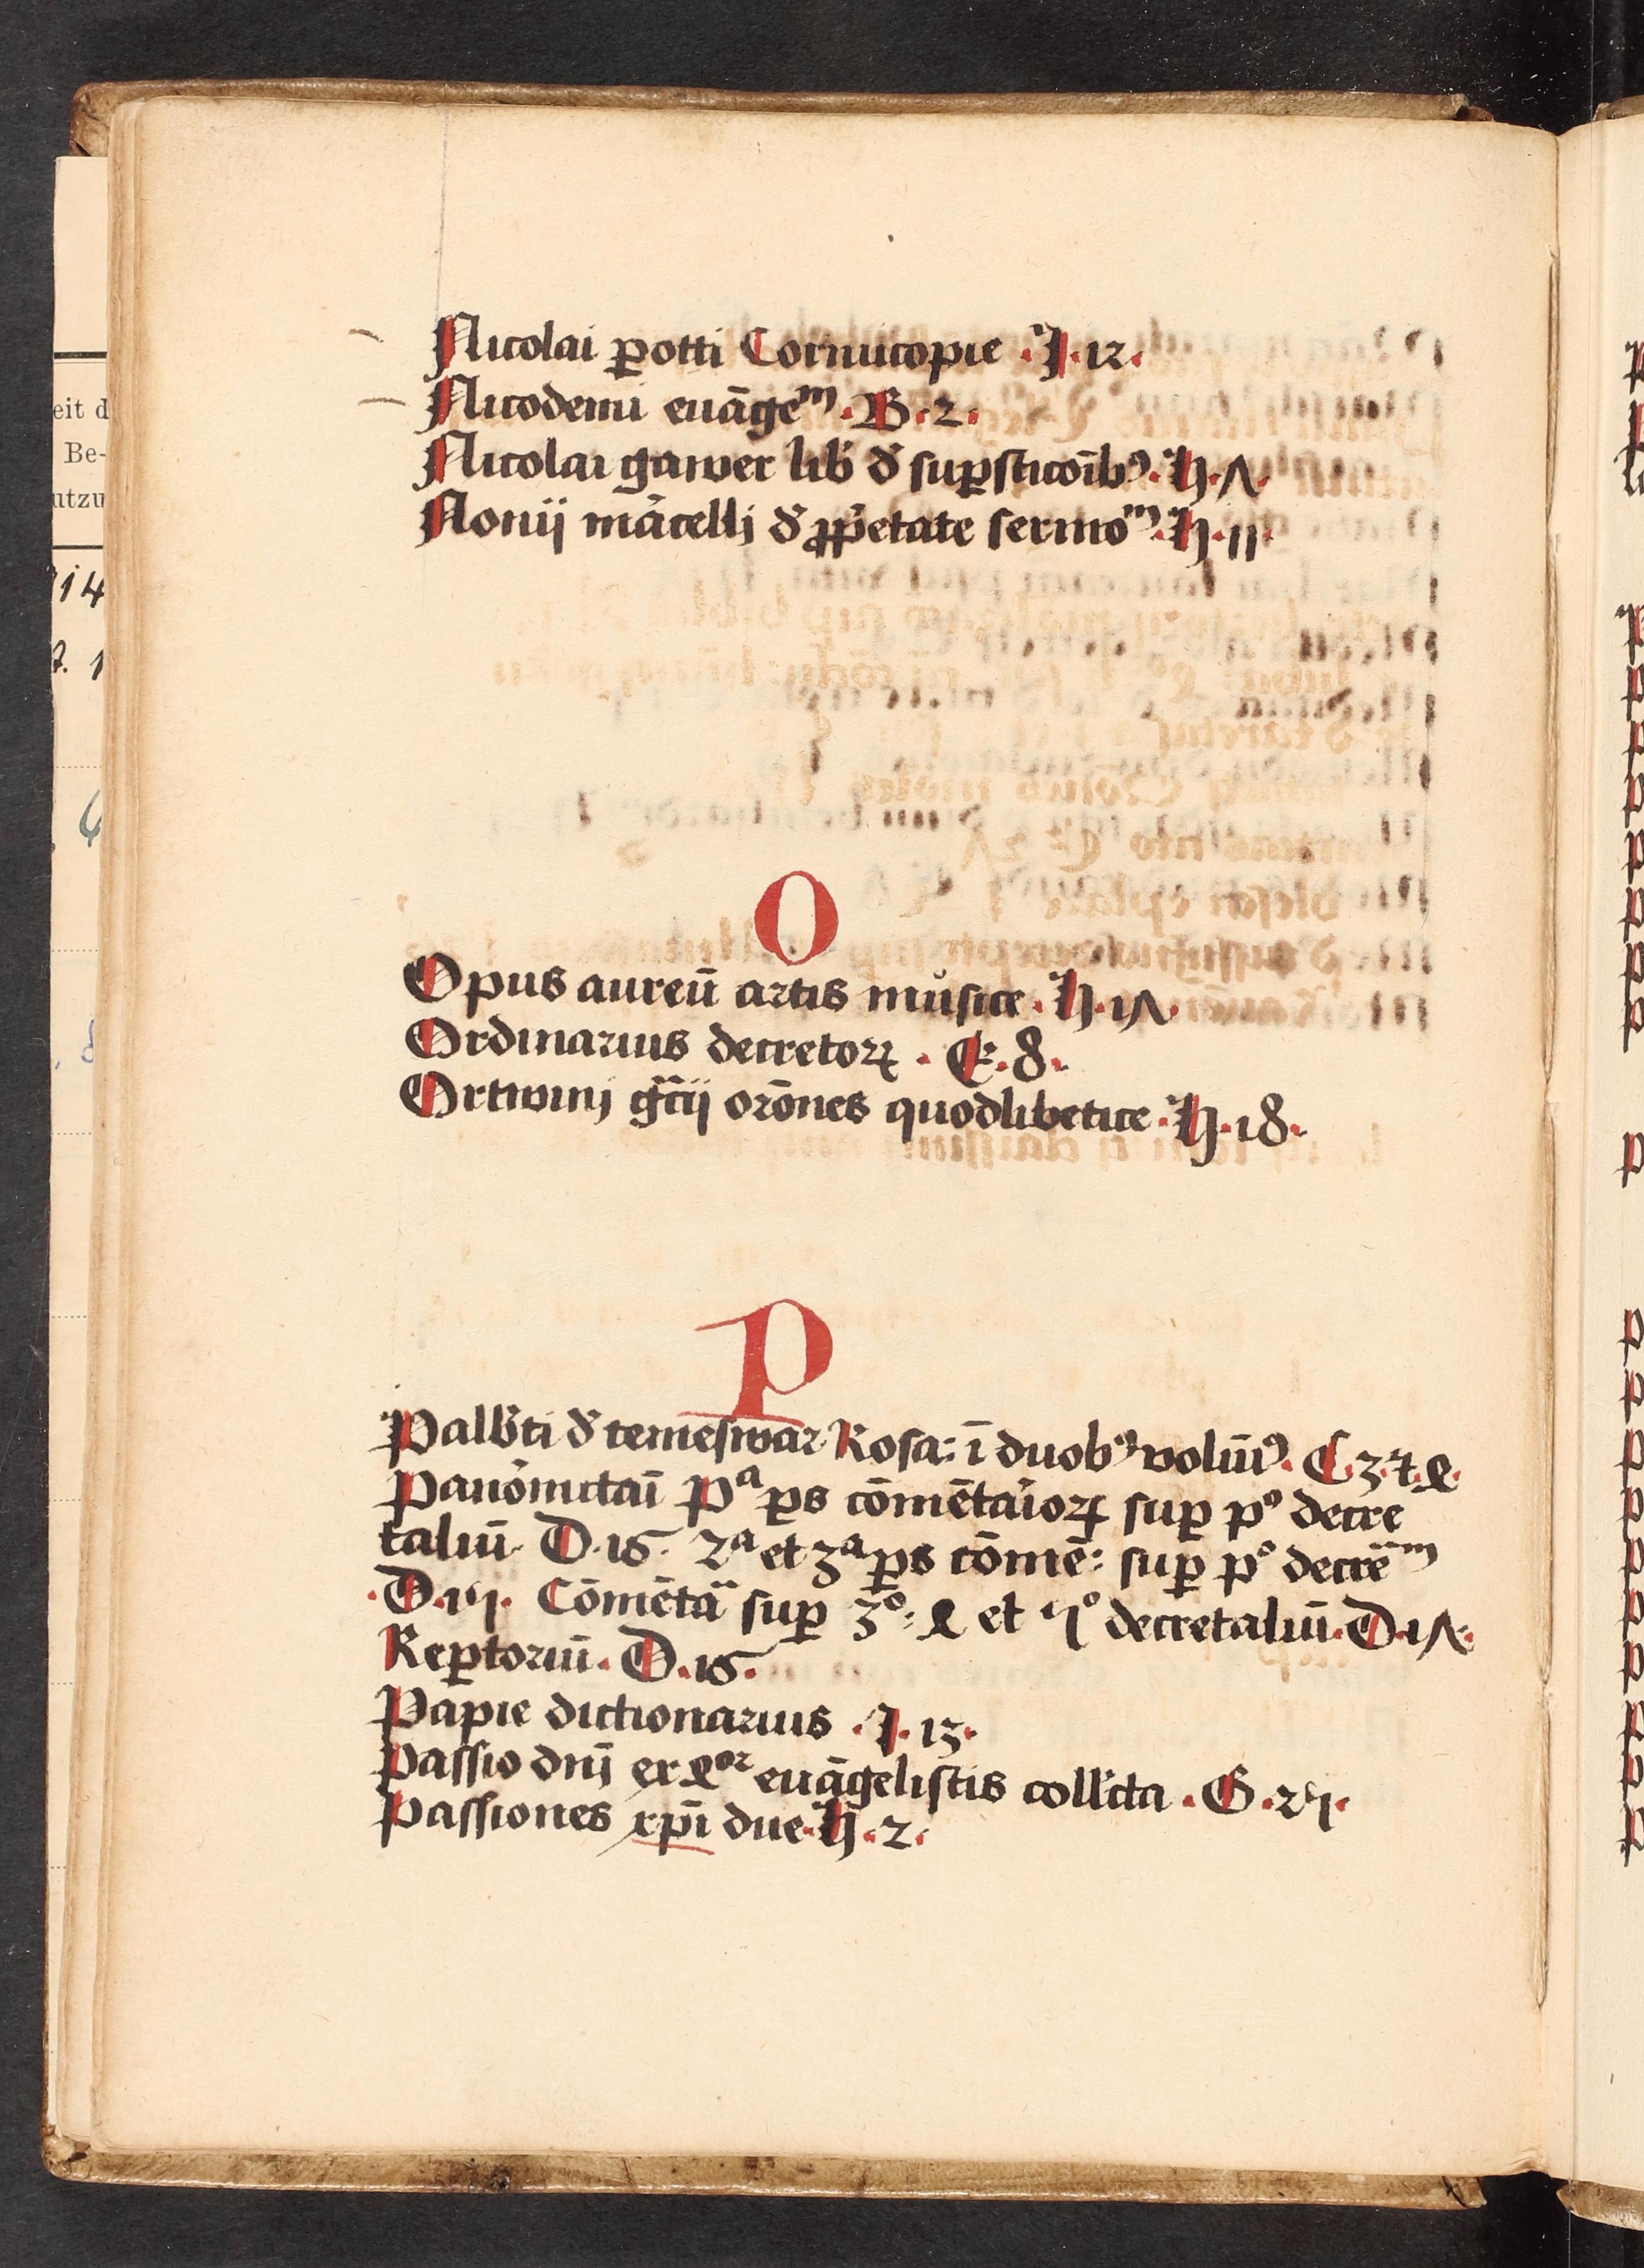 Nicolai ꝑotti Cornucopie .J.12.
Nicodemi euāgeᵐ.B.2.
Nicolai gawer lib̓ d̓ suꝑsticōībꝰ.H.7.
Nonij m̓acellj d̓ ꝓp̓etate sermoᵐ.H.11
O
Opus aureū artis musice.H.17.
Ordinarius decretoꝝ.E.8.
Ortwinj gc̄ij orōnes quodlibetice.H.18.
P
Palb̓ti d̓ temeswar Rosa: ī duobꝰ volūīꝰ.C.3.et.4.
Panōmitaī Pᵃ ꝑs cōmētaīoꝝ suꝑ pº decre
taliū.D.15. 2ᵃ et 3ᵃ ꝑs cōmē: suꝑ pº decrēᵐ
.D.16. Cōmēta suꝑ 3º: 4 et 5º decretaliū.D.17.
Reꝑtoriū.D.15.
Papie dictionarius .J.13.
Passio dnj ex 4ᵒʳ euāgelistis coll̓cta.G.25.
Passiones xp̄i due.H.2.
eit d
Be-
utzu
14